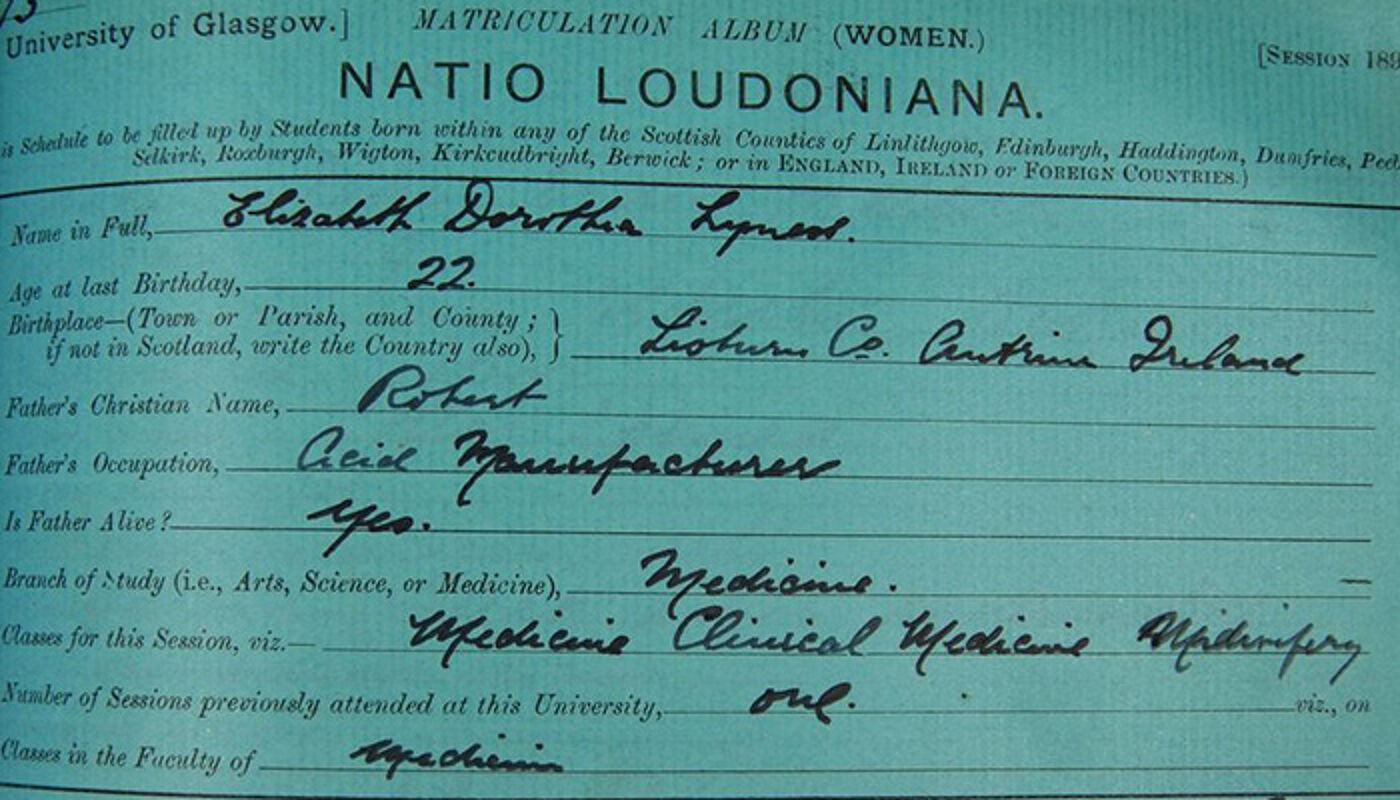 University of Glasgow.] MATRICULATION ALBUM (WOMEN.) [SESSION 189
NATIO LOUDONIANA.
is Schedule to be filled up by Students born within any of the Scottish Counties of Linlithgow, Edinburgh, Haddington, Dumfries, Peeb
Selkirk, Roxburgh, Wigton, Kirkcudbright, Berwick; or in ENGLAND, IRELAND or FOREIGN COUNTRIES.)
Name in Full, Elizabeth Dorothea Lyness.
Age at last Birthday, 22.
Birthplace—(Town or Parish, and County;
if not in Scotland, write the Country also), } Lisburn Co. Antrim Ireland
Father's Christian Name, Robert
Father's Occupation, Acid Manufacturer
Is Father Alive? Yes.
Branch of Study (i.e., Arts, Science, or Medicine), Medicine. —
Classes for this Session, viz.— Medicine Clinical Medicine Midwifery
Number of Sessions previously attended at this University, one. viz., on
Classes in the Faculty of Medicine